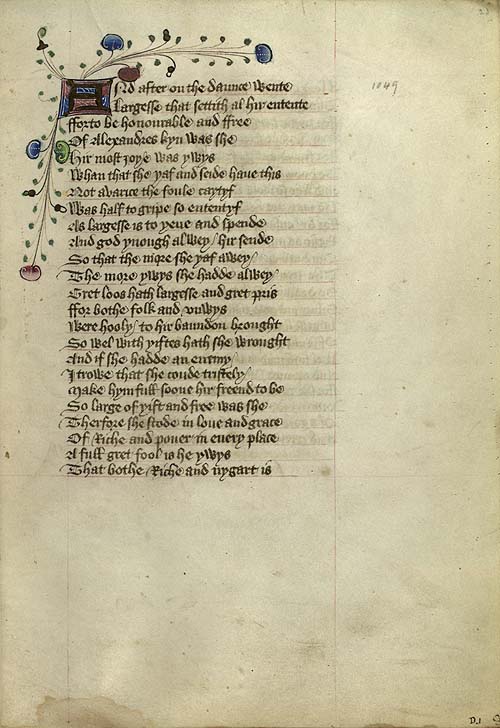 And after on the daunce wente
Largesse that settith al hir entente
fforto be honourable and ffree
Of Alexandres kyn was she
Hir most joye was ywys
Whan that she yaf and seide haue this
Not avarice the foule caytyf
Was half to gripe so ententyf
As largesse is to yeue and spende
And god ynough alwey / hir sende
So that the more she yaf awey /
The more ywys she hadde alwey
Gret loos hath largesse and gret pris
ffor bothe folk and vnwys
Were hooly / to hir baundon brought
So wel with yiftes hath she wrought
And if she hadde an enemy /
I trowe that she coude tristely /
Make hym full soone hir freend to be
So large of yift and free was she
Therfore she stode in loue and grace
Of Riche and pouer in euery place
A full gret fool is he ywys
That bothe Riche and nygart is
1049
D.1